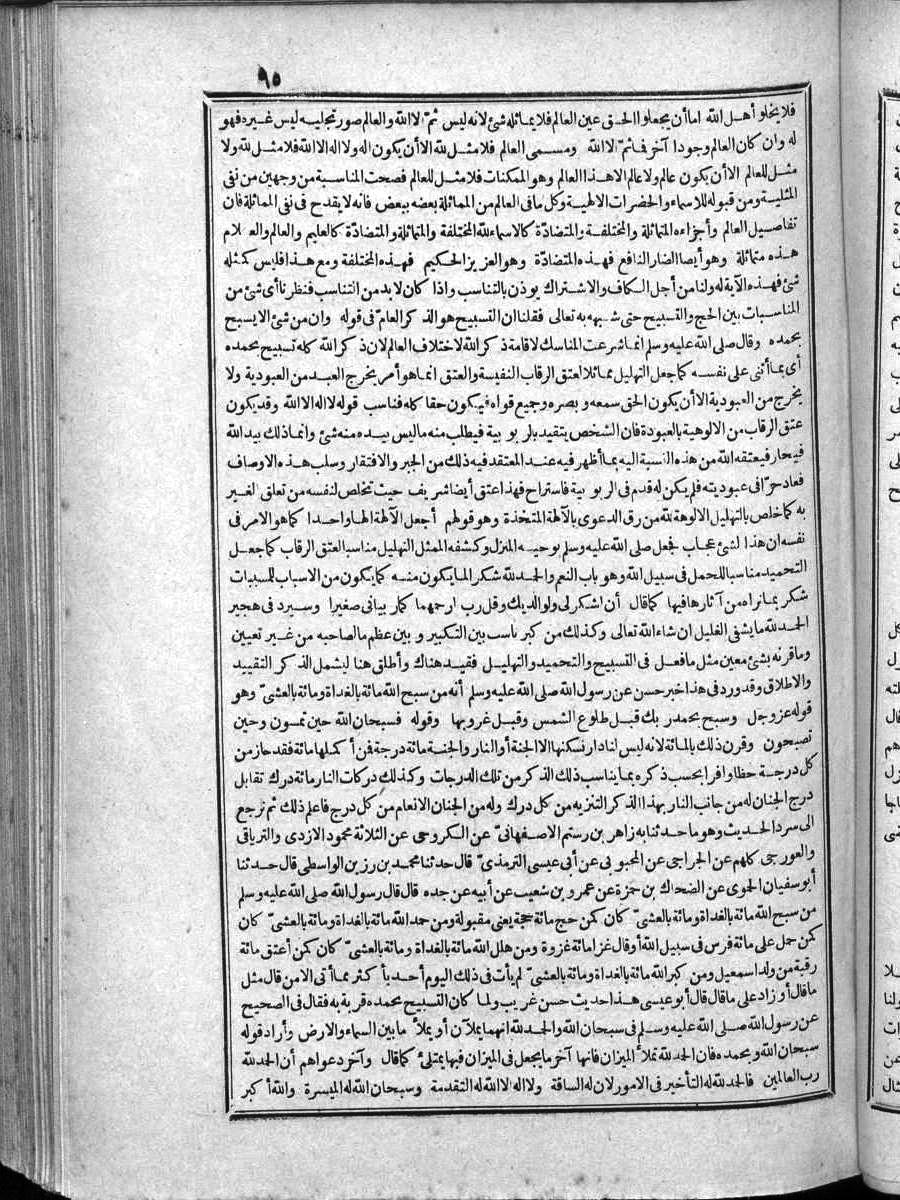 ٩٥
فلا يخلو أهل الله اما أن يجعلوا الحق عين العالم فلا يماثله شئ لانه ليس ثم الا الله والعالم صور تجليه ليس غيره فهو
له وان كان العالم وجودا آخر فاثم الا الله ومسمى العالم فلا مثل لله الا أن يكون اله ولا اله الا الله فلا مثل لله ولا
مثل للعالم الا أن يكون عالم ولا عالم الا هذا العالم وهو الممكنات فلا مثل للعالم فصحت المناسبة من وجهين من نفى
المثلية ومن قبوله للاسماء والحضرات الالهية وكل مافى العالم من المماثلة بعضه ببعض فانه لا يقدح فى نفى المماثلة فان
تفاصيل العالم وأجزاءه المتماثلة والمختلفة والمتضادّة كالاسماء لله المختلفة والمتماثلة والمتضادّة كالعليم والعالم والعلام
هذه متماثلة وهو أيضا الضار النافع فهذه المتضادّة وهو العزيز الحكيم فهذه المختلفة ومع هذا فليس كمثله
شئ فهذه الآية له ولنا من أجل الكاف والاشتراك يوذن بالتناسب واذا كان لابد من التناسب فنظرنا أى شئ من
المناسبات بين الحج والتسبيح حتى شبهه به تعالى فقلنا ان التسبيح هو الذكر العامّ فى قوله وان من شئ الا يسبح
بحمده وقال صلى الله عليه وسلم انما شرعت المناسك لاقامة ذكر الله لاختلاف العالم لان ذكر الله كله تسبيح بحمده
أى بما أثنى على نفسه كما جعل التهليل مماثلا لعتق الرقاب النفيسة والعتق انما هو أمر يخرج العبد من العبودية ولا
يخرج من العبودية الا أن يكون الحق سمعه وبصره وجميع قواه فيكون حقا كله فناسب قوله لا اله الا الله وقد يكون
عتق الرقاب من الالوهية بالعبودة فان الشخص يتقيد بالربوبية فيطلب منه ما ليس بيده منه شئ وانما ذلك بيد الله
فيحار فيعتقه الله من هذه النسبة اليه بما أظهر فيه عند المعتقد فيه ذلك من الجبر والافتقار وسلب هذه الاوصاف
فعاد حرّا فى عبوديته فلم يكن له قدم فى الربوبية فاستراح فهذا عتق أيضا شريف حيث تخلص لنفسه من تعلق الغير
به كما خلص بالتهليل الالوهة لله من رق الدعوى بالآلهة المتخذة وهو قولهم أجعل الآلهة الها واحدا كما هو الامر فى
نفسه ان هذا لشئ عجاب فجعل صلى الله عليه وسلم بوحيه المنزل وكشفه الممثل التهليل مناسبا لعتق الرقاب كما جعل
التحميد مناسبا للحمل فى سبيل الله وهو باب النعم والحمد لله شكر لما يكون منه كما يكون من الاسباب للمسببات
شكر بما تراه من آثارها فيها كما قال أن اشكر لى ولوالديك وقل رب ارحمهما كما ربيانى صغيرا وسيرد فى هجير
الحمد لله ما يشفى الغليل ان شاء الله تعالى وكذلك من كبر ناسب بين التكبير و بين عظم ما لصاحبه من غير تعيين
وما قرنه بشئ معين مثل ما فعل فى التسبيح والتحميد والتهليل فقيد هناك وأطلق هنا ليشمل الذكر التقييد
والاطلاق وقد ورد فى هذا خبر حسن عن رسول الله صلى الله عليه وسلم أنه من سبح الله مائة بالغداة ومائة بالعشىّ وهو
قوله عز وجل وسبح بحمد ربك قبل طلوع الشمس وقبل غروبها وقوله فسبحان الله حين تمسون وحين
تصبحون وقرن ذلك بالمائة لانه ليس لنا دار نسكنها الا الجنة أو النار والجنة مائة درجة فمن أكملها مائة فقد حاز من
كل درجة حظا وافرا بحسب ذكره بما يناسب ذلك الذكر من تلك الدرجات وكذلك دركات النار مائة درك تقابل
درج الجنان له من جانب النار بهذا الذكر التنزيه من كل درك وله من الجنان الانعام من كل درج فاعلم ذلك ثم نرجع
الى سرد الحديث وهو ما حدثنا به زاهر بن رستم الاصفهانىّ عن الكروحى عن الثلاثة محمود الازدى والترياقى
والغورجى كلهم عن الجراحى عن المحبوبى عن أبى عيسى الترمذىّ قال حدثنا محمد بن رزين الواسطى قال حدثنا
أبو سفيان الحموى عن الضحاك بن حمزة عن عمرو بن شعيب عن أبيه عن جده قال قال رسول الله صلى الله عليه وسلم
من سبح الله مائة بالغداة ومائة بالعشىّ كان كمن حج مائة حجة يعنى مقبولة ومن حمد الله مائة بالغداة ومائة بالعشىّ كان
كمن حمل على مائة فرس فى سبيل الله أو قال غزا مائة غزوة ومن هلل الله مائة بالغداة ومائة بالعشىّ كان كمن أعتق مائة
رقبة من ولد اسمعيل ومن كبر الله مائة بالغداة ومائة بالعشىّ لم يأت فى ذلك اليوم أحد بأكثر مما أتى الا من قال مثل
ما قال أو زاد على ما قال قال أبو عيسى هذا حديث حسن غريب ولما كان التسبيح بحمده قربة به فقال فى الصحيح
عن رسول الله صلى الله عليه وسلم فى سبحان الله والحمد لله انهما يملآن أو يملأ ما بين السماء والارض وأراد قوله
سبحان الله وبحمده فان الحمد لله تملأ الميزان فانها آخر ما يجعل فى الميزان فبها يمتلئ كما قال وآخر دعواهم أن الحمد لله
رب العالمين فالحمد لله له التأخير فى الامور لان له الساقة ولا اله الا الله له التقدمة وسبحان الله له الميسرة والله أكبر